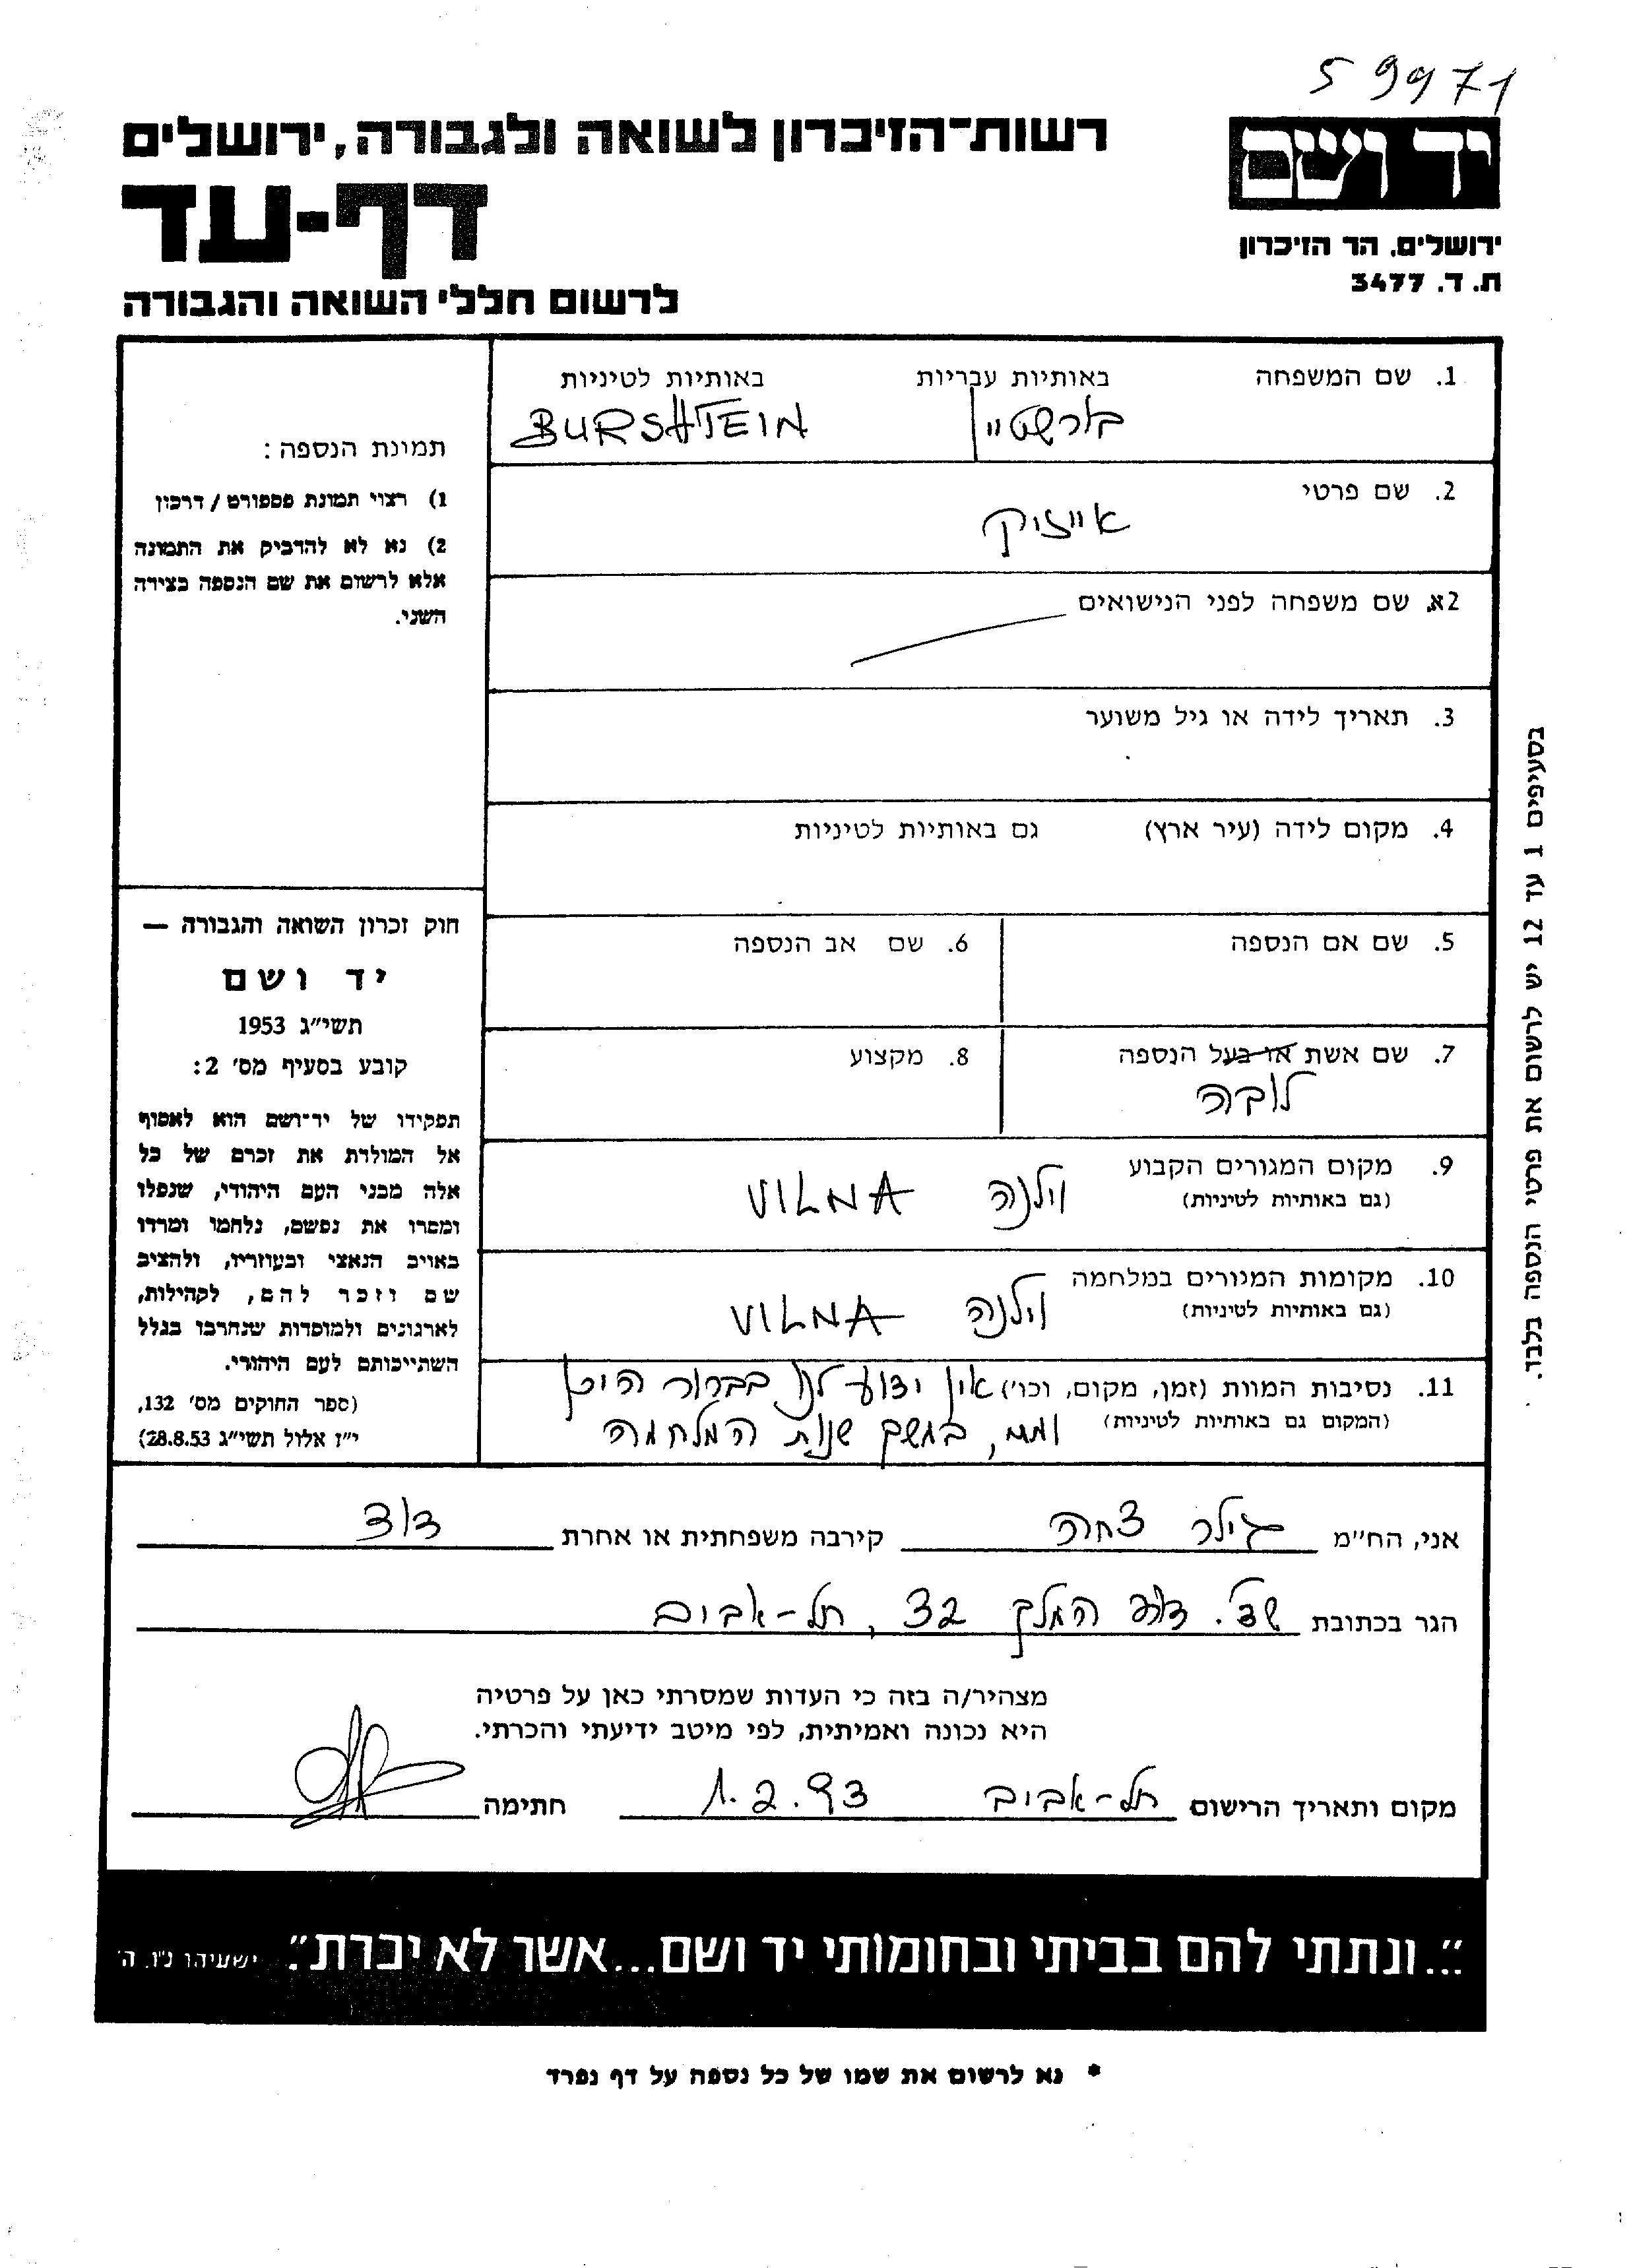 59971
יד ושם
רשות-הזיכרון לשואה ולגבורה, ירושלים
דף-עד
ירושלים, הר הזיכרון
ת. ד. 3477
לרשום חללי השואה והגבורה
1. שם המשפחה באותיות עבריות באותיות לטיניות
בורשטיין BURSHTEIN
2. שם פרטי
אייזיק
2א. שם משפחה לפני הנישואים
3. תאריך לידה או גיל משוער
4. מקום לידה (עיר ארץ) גם באותיות לטיניות
5. שם אם הנספה
6. שם אב הנספה
7. שם אשת או בעל הנספה
לובה
8. מקצוע
9. מקום המגורים הקבוע
(גם באותיות לטיניות)
וילנה VILNA
10. מקומות המגורים במלחמה
(גם באותיות לטיניות)
וילנה VILNA
11. נסיבות המוות (זמן, מקום, וכו') אין ידוע לנו בברור היכן
(המקום גם באותיות לטיניות) ומתי, במשך שנות המלחמה
תמונת הנספה:
1) רצוי תמונת פספורט / דרכון
2) נא לא להדביק את התמונה
אלא לרשום את שם הנספה בצידה
השני.
חוק זכרון השואה והגבורה —
יד ושם
תשי"ג 1953
קובע בסעיף מס' 2:
תפקידו של יד-ושם הוא לאסוף
אל המולדת את זכרם של כל
אלה מבני העם היהודי, שנפלו
ומסרו את נפשם, נלחמו ומרדו
באויב הנאצי ובעוזריו, ולהציב
שם וזכר להם, לקהילות,
לארגונים ולמוסדות שנחרבו בגלל
השתייכותם לעם היהודי.
(ספר החוקים מס' 132,
י"ז אלול תשי"ג 28.8.53)
בסעיפים 1 עד 12 יש לרשום את פרטי הנספה בלבד.
אני, הח"מ צהרה קירבה משפחתית או אחרת דוד
הגר בכתובת שד'. דוד המלך 32, תל-אביב
מצהיר/ה בזה כי העדות שמסרתי כאן על פרטיה
היא נכונה ואמיתית, לפי מיטב ידיעתי והכרתי.
מקום ותאריך הרישום תל-אביב 1.2.93 חתימה
"...ונתתי להם בביתי ובחומותי יד ושם...אשר לא יכרת". ישעיהו נ"ו, ה'
* נא לרשום את שמו של כל נספה על דף נפרד